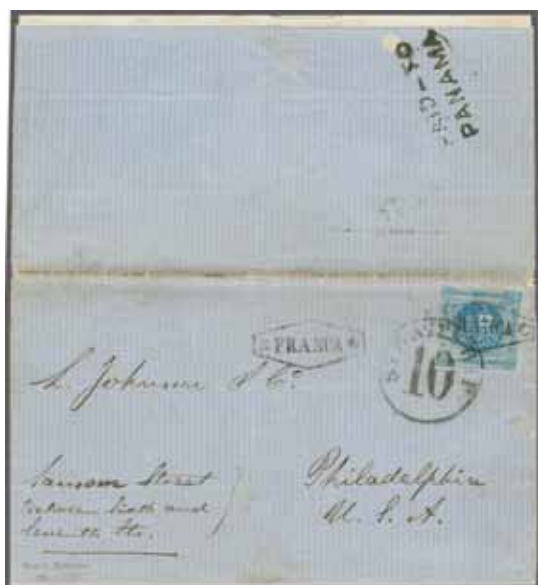 PAID-10
PANAMA
FRANCA
FRANCA
STEAMSHIP
10
L. Johnson & Co.
Sansom Street
between Sixth and
Seventh Sts.
Philadelphia
U. S. A.